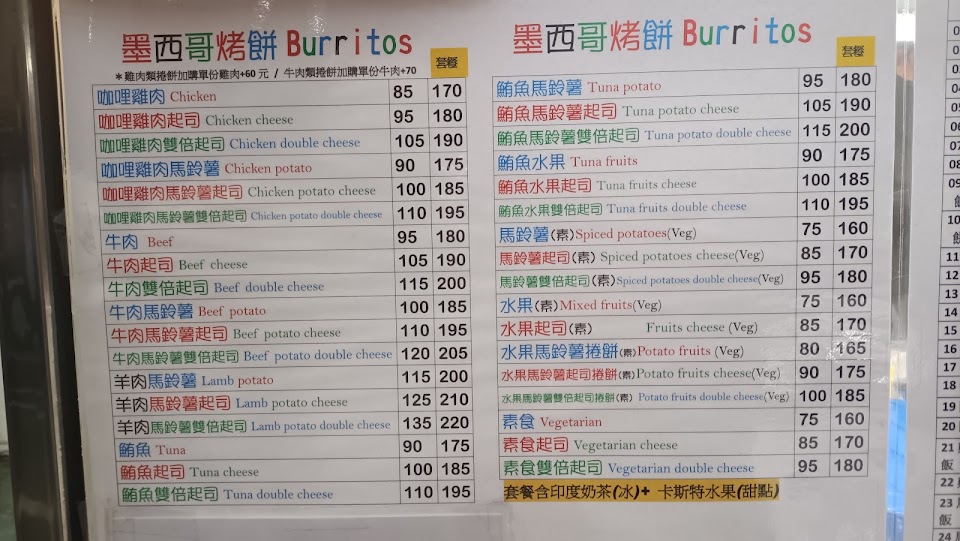 墨西哥烤餅 Burritos
套餐
＊雞肉類捲餅加購單份雞肉+60 元 / 牛肉類捲餅加購單份牛肉+70
咖哩雞肉 Chicken 85 170
咖哩雞肉起司 Chicken cheese 95 180
咖哩雞肉雙倍起司 Chicken double cheese 105 190
咖哩雞肉馬鈴薯 Chicken potato 90 175
咖哩雞肉馬鈴薯起司 Chicken potato cheese 100 185
咖哩雞肉馬鈴薯雙倍起司 Chicken potato double cheese 110 195
牛肉 Beef 95 180
牛肉起司 Beef cheese 105 190
牛肉雙倍起司 Beef double cheese 115 200
牛肉馬鈴薯 Beef potato 100 185
牛肉馬鈴薯起司 Beef potato cheese 110 195
牛肉馬鈴薯雙倍起司 Beef potato double cheese 120 205
羊肉馬鈴薯 Lamb potato 115 200
羊肉馬鈴薯起司 Lamb potato cheese 125 210
羊肉馬鈴薯雙倍起司 Lamb potato double cheese 135 220
鮪魚 Tuna 90 175
鮪魚起司 Tuna cheese 100 185
鮪魚雙倍起司 Tuna double cheese 110 195
墨西哥烤餅 Burritos
套餐
鮪魚馬鈴薯 Tuna potato 95 180
鮪魚馬鈴薯起司 Tuna potato cheese 105 190
鮪魚馬鈴薯雙倍起司 Tuna potato double cheese 115 200
鮪魚水果 Tuna fruits 90 175
鮪魚水果起司 Tuna fruits cheese 100 185
鮪魚水果雙倍起司 Tuna fruits double cheese 110 195
馬鈴薯(素)Spiced potatoes(Veg) 75 160
馬鈴薯起司(素) Spiced potatoes cheese(Veg) 85 170
馬鈴薯雙倍起司(素)Spiced potatoes double cheese(Veg) 95 180
水果(素)Mixed fruits(Veg) 75 160
水果起司(素) Fruits cheese (Veg) 85 170
水果馬鈴薯捲餅(素)Potato fruits (Veg) 80 165
水果馬鈴薯起司捲餅(素)Potato fruits cheese(Veg) 90 175
水果馬鈴薯雙倍起司捲餅(素) Potato fruits double cheese(Veg) 100 185
素食 Vegetarian 75 160
素食起司 Vegetarian cheese 85 170
素食雙倍起司 Vegetarian double cheese 95 180
套餐含印度奶茶(冰)+ 卡斯特水果(甜點)
10
11
12
13
14
15
16
17
18
19
20
21
飯
22
23
飯
24